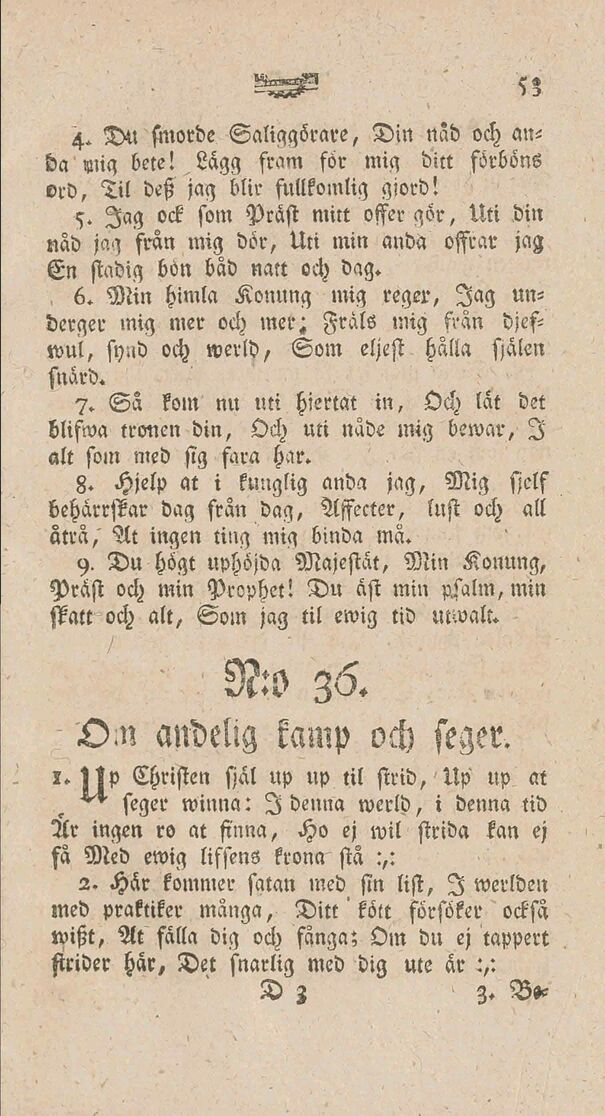 53
4. Du smorde Saliggörare, Din nåd och an-
da mig bete! Lägg fram för mig ditt förböns
ord, Til deß jag blir fullkomlig gjord!
5. Jag ock som Präst mitt offer gör, Uti din
nåd jag från mig dör, Uti min anda offrar jag
En stadig bön båd natt och dag.
6. Min himla Konung mig reger, Jag un-
derger mig mer och mer; Fräls mig från djef-
wul, synd och werld, Som eljest hålla själen
snärd.
7. Så kom nu uti hjertat in, Och lät det
blifwa tronen din, Och uti nåde mig bewar, I
alt som med sig fara har.
8. Hjelp at i kunglig anda jag, Mig sjelf
behärrskar dag från dag, Affecter, lust och all
åtrå, At ingen ting mig binda må.
9. Du högt uphöjda Majestät, Min Konung,
Präst och min Prophet! Du äst min psalm, min
skatt och alt, Som jag til ewig tid utwalt.
N:o 36.
Om andelig kamp och seger.
1. Up Christen själ up up til strid, Up up at
seger winna: I denna werld, i denna tid
Är ingen ro at finna, Ho ej wil strida kan ej
få Med ewig lifsens krona stå :,:
2. Här kommer satan med sin list, I werlden
med praktiker många, Ditt kött försöker också
wißt, At fälla dig och fånga; Om du ej tappert
strider här, Det snarlig med dig ute är :,:
D 3 3. Be-